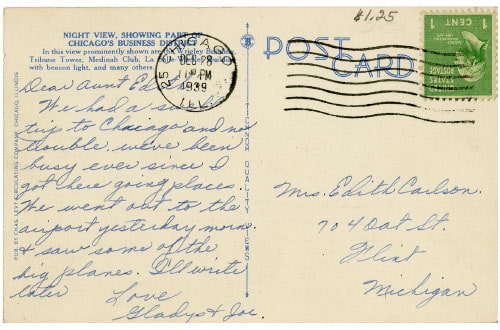 $1.25
NIGHT VIEW, SHOWING PART OF
CHICAGO'S BUSINESS DISTRICT
In this view prominently shown are the Wrigley Building,
Tribune Tower, Medinah Club, La Salle-Wacker Building
with beacon light, and many others.
POST CARD
CHICAGO
DEC 28
PM
1939
ILL.
1 CENT 1
Dear Aunt Edith
We had a
trip to Chicago and no
trouble. We've been
busy ever since I
got here going places.
We went out to the
airport yesterday morn.
& saw some of the
big planes. I'll write
later
Love
Gladys & Joe.
Mrs. Edith Carlson.
704 Oat St.
Flint
Michigan
PUB. BY CHAS. LEVY CIRCULATING COMPANY, CHICAGO, ILLINOIS
TICHNOR QUALITY VIEWS